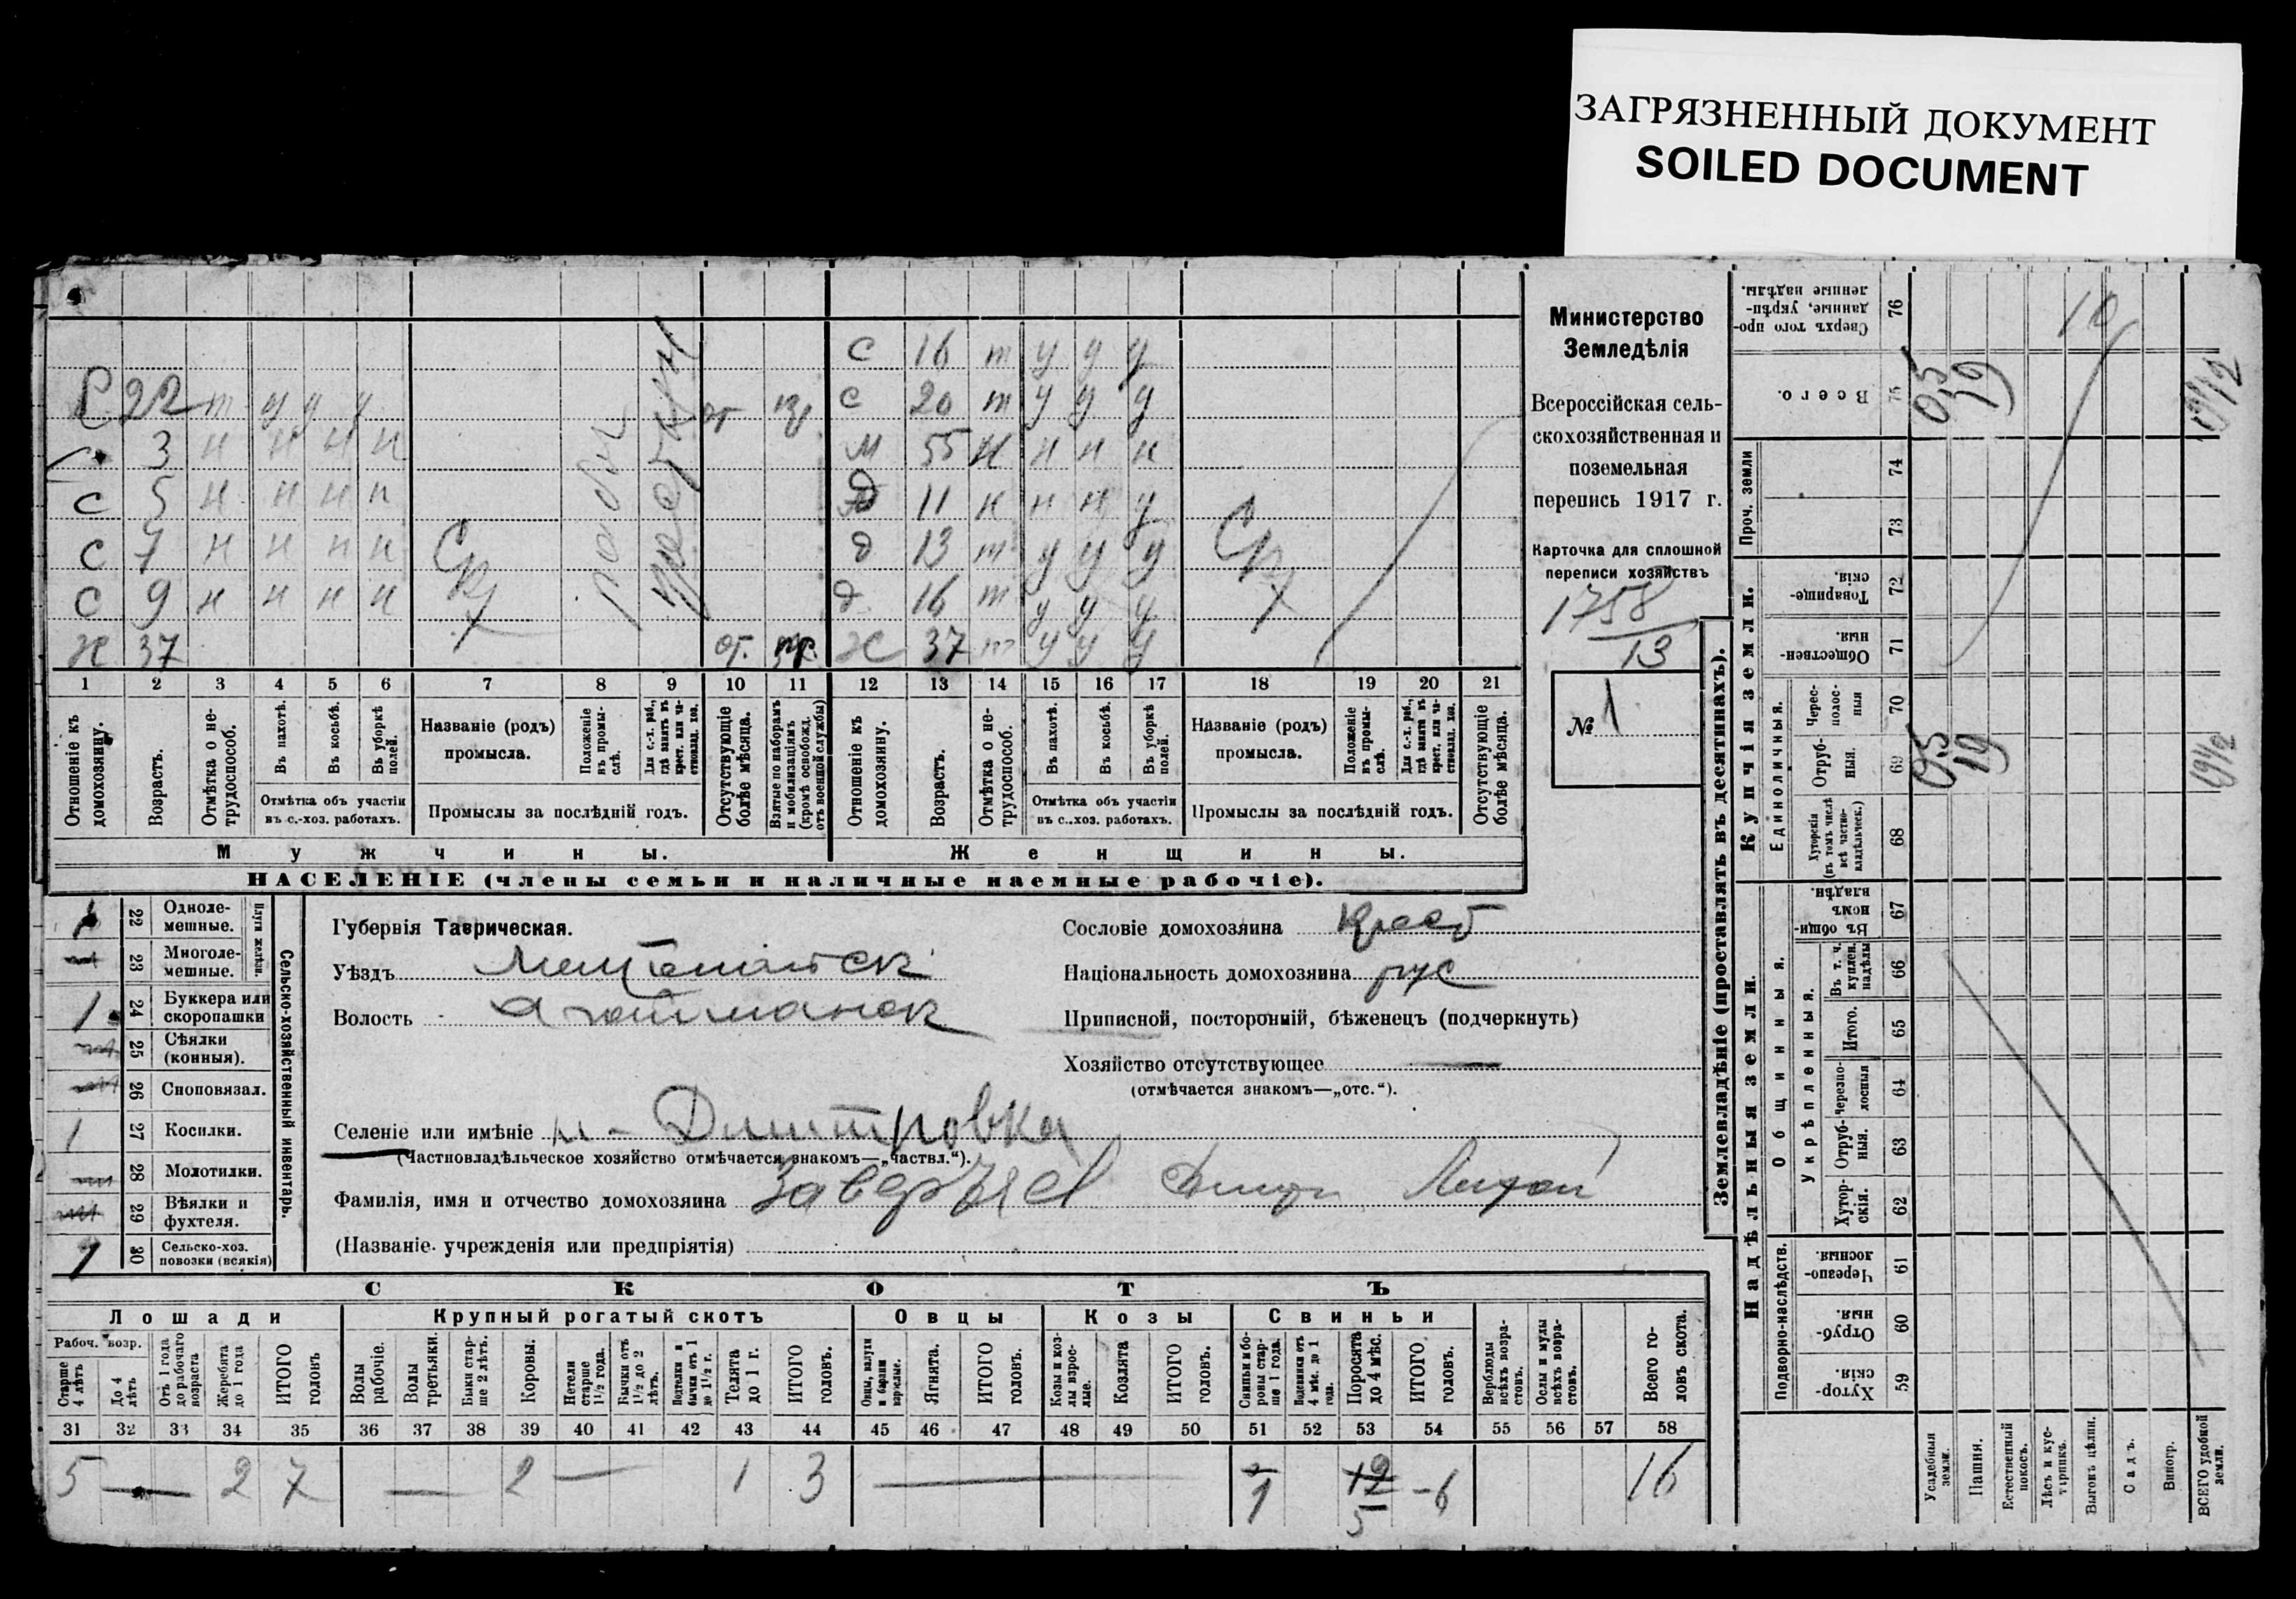 ЗАГРЯЗНЕННЫЙ ДОКУМЕНТ
SOILED DOCUMENT
Министерство
Земледѣлія
Всероссійская сель-
скохозяйственная и
поземельная
перепись 1917 г.
Карточка для сплошной
переписи хозяйствъ
1758
13
№ 1
с 16 т у у у
Р 22 т у у у от с 20 т у у у
3 н н н н м 55 н н н н
с 5 н н н н д 11 н н н у
с 7 н н н н д 13 т у у у
с 9 н н н н д 16 т у у у
х 37 от. х 37 т у у у
1 2 3 4 5 6 7 8 9 10 11 12 13 14 15 16 17 18 19 20 21
Отношеніе къ домохозяину.
Возрастъ.
Отмѣтка о не-трудоспособ.
Въ пахотѣ.
Въ косьбѣ.
Въ уборкѣ полей.
Отмѣтка объ участіи
въ с.-хоз. работахъ.
Названіе (родъ)
промысла.
Положеніе въ промы-слѣ.
Для с.-х. раб., гдѣ занятъ въ крест. или ча-стновлад. хоз.
Промыслы за послѣдній годъ.
Отсутствующіе болѣе мѣсяца.
Взятые по наборамъ и мобилизаціямъ (кромѣ освобожд. отъ военной службы)
Отношеніе къ домохозяину.
Возрастъ.
Отмѣтка о не-трудоспособ.
Въ пахотѣ.
Въ косьбѣ.
Въ уборкѣ полей.
Отмѣтка объ участіи
въ с.-хоз. работахъ.
Названіе (родъ)
промысла.
Положеніе въ промы-слѣ.
Для с.-х. раб., гдѣ занятъ въ крест. или ча-стновлад. хоз.
Промыслы за послѣдній годъ.
Отсутствующіе болѣе мѣсяца.
Мужчины. Женщины.
НАСЕЛЕНІЕ (члены семьи и наличные наемные рабочіе).
22 Одноле-мешные.
23 Многоле-мешные.
Плуги желѣзн.
1 24 Буккера или скоропашки
25 Сѣялки (конныя).
26 Сноповязал.
1 27 Косилки.
28 Молотилки.
29 Вѣялки и фухтеля.
1 30 Сельско-хоз. повозки (всякія)
Сельско-хозяйственный инвентарь.
Губернія Таврическая.
Уѣздъ Мелитопольск
Волость Агайманск
Сословіе домохозяина Крест
Національность домохозяина рус
Приписной, посторонній, бѣженецъ (подчеркнуть)
Хозяйство отсутствующее —
(отмѣчается знакомъ—„отс.“).
Селеніе или имѣніе м - Дмитровка
(Частновладѣльческое хозяйство отмѣчается знакомъ—„частвл.“).
Фамилія, имя и отчество домохозяина
(Названіе учрежденія или предпріятія)
СКОТЪ
Лошади Крупный рогатый скотъ Овцы Козы Свиньи
Рабоч. возр.
Старше 4 лѣтъ
До 4 лѣтъ
Отъ 1 года до рабочаго возраста
Жеребята до 1 года
ИТОГО головъ
Волы рабочіе.
Волы третьяки.
Быки стар-ше 2 лѣтъ.
Коровы.
Нетели старше 1 1/2 года.
Бычки отъ 1 1/2 до 2 лѣтъ.
Подтелки и бычки отъ 1 до 1 1/2 г.
Телята до 1 г.
ИТОГО головъ.
Овцы, валухи и бараны взрослые.
Ягнята.
ИТОГО головъ.
Козы и коз-лы взрос-лые.
Козлята
ИТОГО головъ.
Свиньи и бо-ровы стар-ше 1 года.
Подсвинки отъ 4 мѣс. до 1 года.
Поросята до 4 мѣс.
ИТОГО головъ.
Верблюды всѣхъ возра-стовъ.
Ослы и мулы всѣхъ возра-стовъ.
Всего го-ловъ скота.
31 32 33 34 35 36 37 38 39 40 41 42 43 44 45 46 47 48 49 50 51 52 53 54 55 56 57 58
5 — 2 7 — 2 — 1 3 — 1 12 5 -6 16
Землевладѣніе (проставлять въ десятинахъ).
Купчія земли.
Надѣльныя земли.
Сверхъ того про-данные, укрѣп-ленные надѣлы. 76
Всего. 75
Проч. земли 74 73
Товарище-скія. 72
Обществен-ныя. 71
Единоличныя.
Черес-полос-ныя 70
Отруб-ныя. 69
Хуторскія (въ томъ числѣ всѣ частно-владѣльческ.) 68
Общинныя.
Въ общин-номъ владѣн. 67
Укрѣпленныя.
Въ т. ч. куплен. надѣлы 66
Итого. 65
Черезпо-лосныя 64
Отруб-ныя. 63
Хутор-скія. 62
Подворно-наслѣдств.
Черезпо-лосныя. 61
Отруб-ныя. 60
Хутор-скія 59
Усадебныя земли.
Пашня.
Естественный покосъ.
Лѣсъ и кус-тарникъ.
Выгонъ цѣлин.
Садъ.
Виногр.
ВСЕГО удобной земли.
05 19 19 1/2
05 19 19 1/2
10